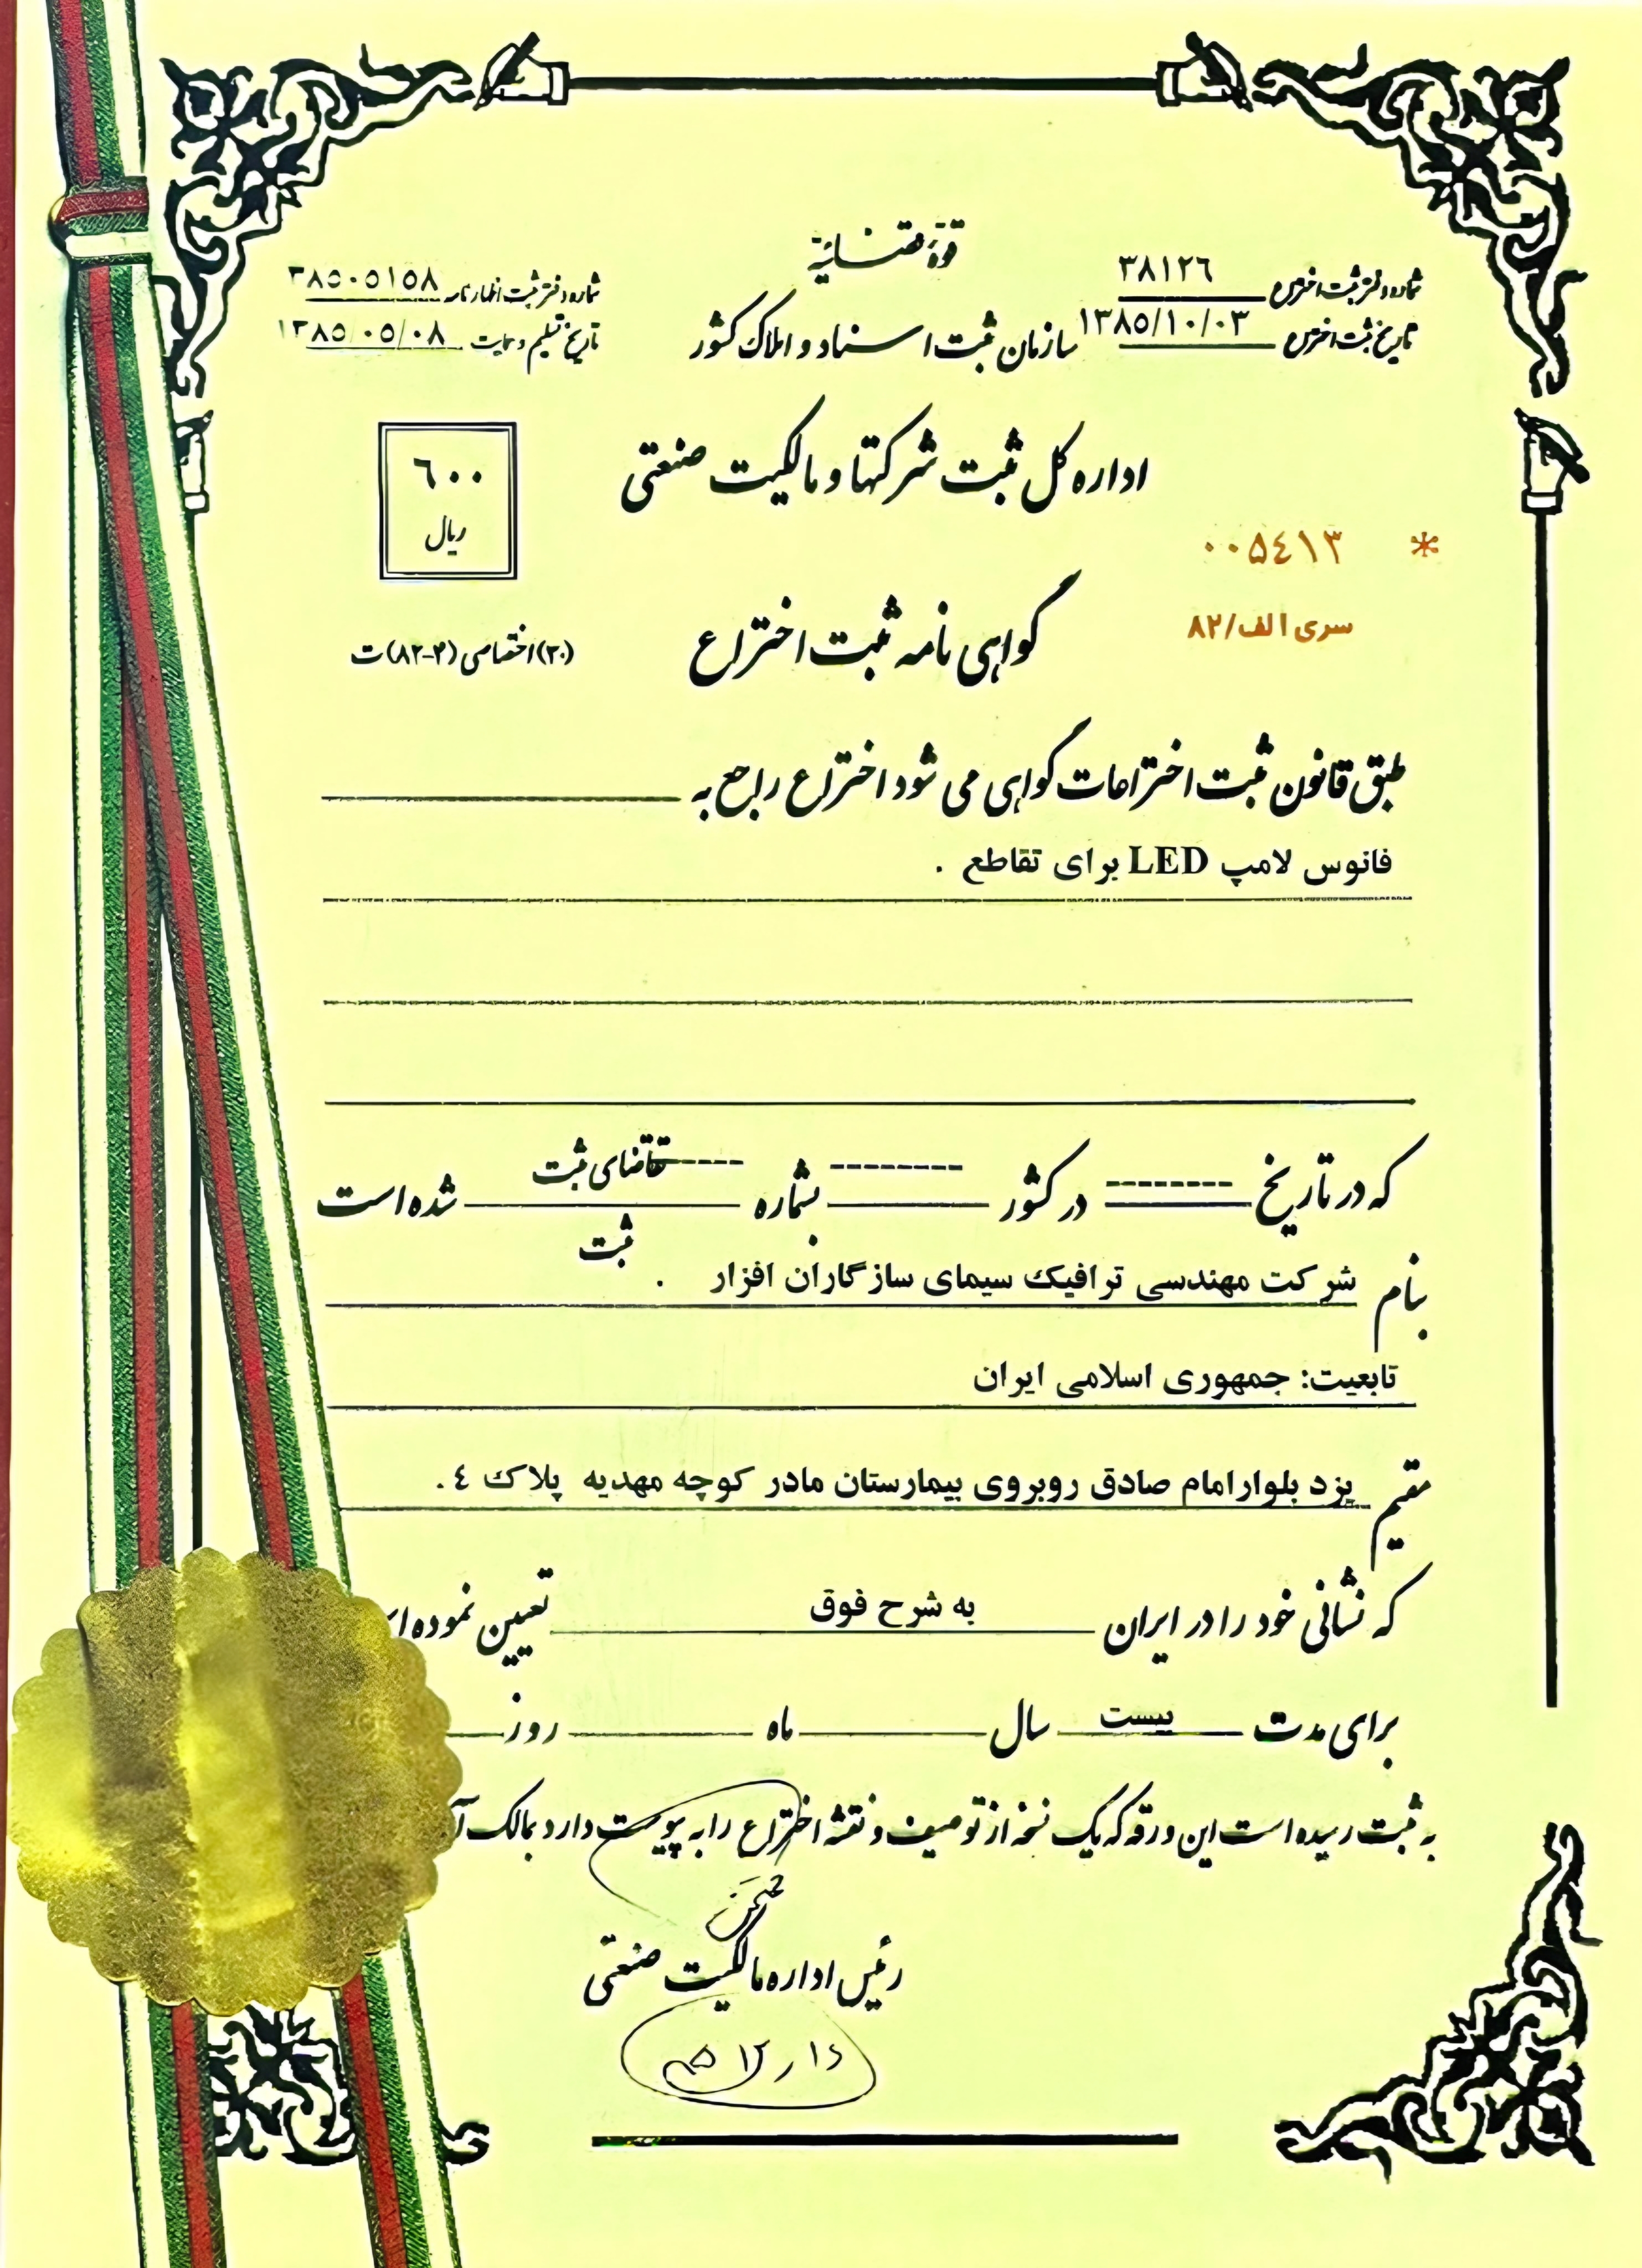 قوهٔ قضائیه
شماره دفتر ثبت اختراع ۳۸۱۲٦
تاریخ ثبت اختراع ۱۳۸٥/۱۰/۰۳
شماره دفتر ثبت اظهارنامه ۳۸٥۰٥۱٥۸
تاریخ تسلیم و حمایت ۱۳۸٥/۰٥/۰۸
سازمان ثبت اسناد و املاک کشور
اداره کل ثبت شرکتها و مالکیت صنعتی
٦۰۰
ریال
* ۰۰۵٤۱۳
سری الف/۸۲
گواهی نامه ثبت اختراع
(۲۰) اختصاصی (۴-۸۲) ت
طبق قانون ثبت اختراعات گواهی می شود اختراع راجع به
فانوس لامپ LED برای تقاطع .
که در تاریخ -------- در کشور -------- بشماره ------ تقاضای ثبت شده است
ثبت
بنام شرکت مهندسی ترافیک سیمای سازگاران افزار .
تابعیت: جمهوری اسلامی ایران
مقیم یزد بلوار امام صادق روبروی بیمارستان مادر کوچه مهدیه پلاک ٤ .
که نشانی خود را در ایران به شرح فوق تعیین نموده
برای مدت بیست سال ماه روز
به ثبت رسیده است این ورقه که یک نسخه از توصیف و نقشه اختراع را به پیوست دارد بمالک
رئیس اداره مالکیت صنعتی